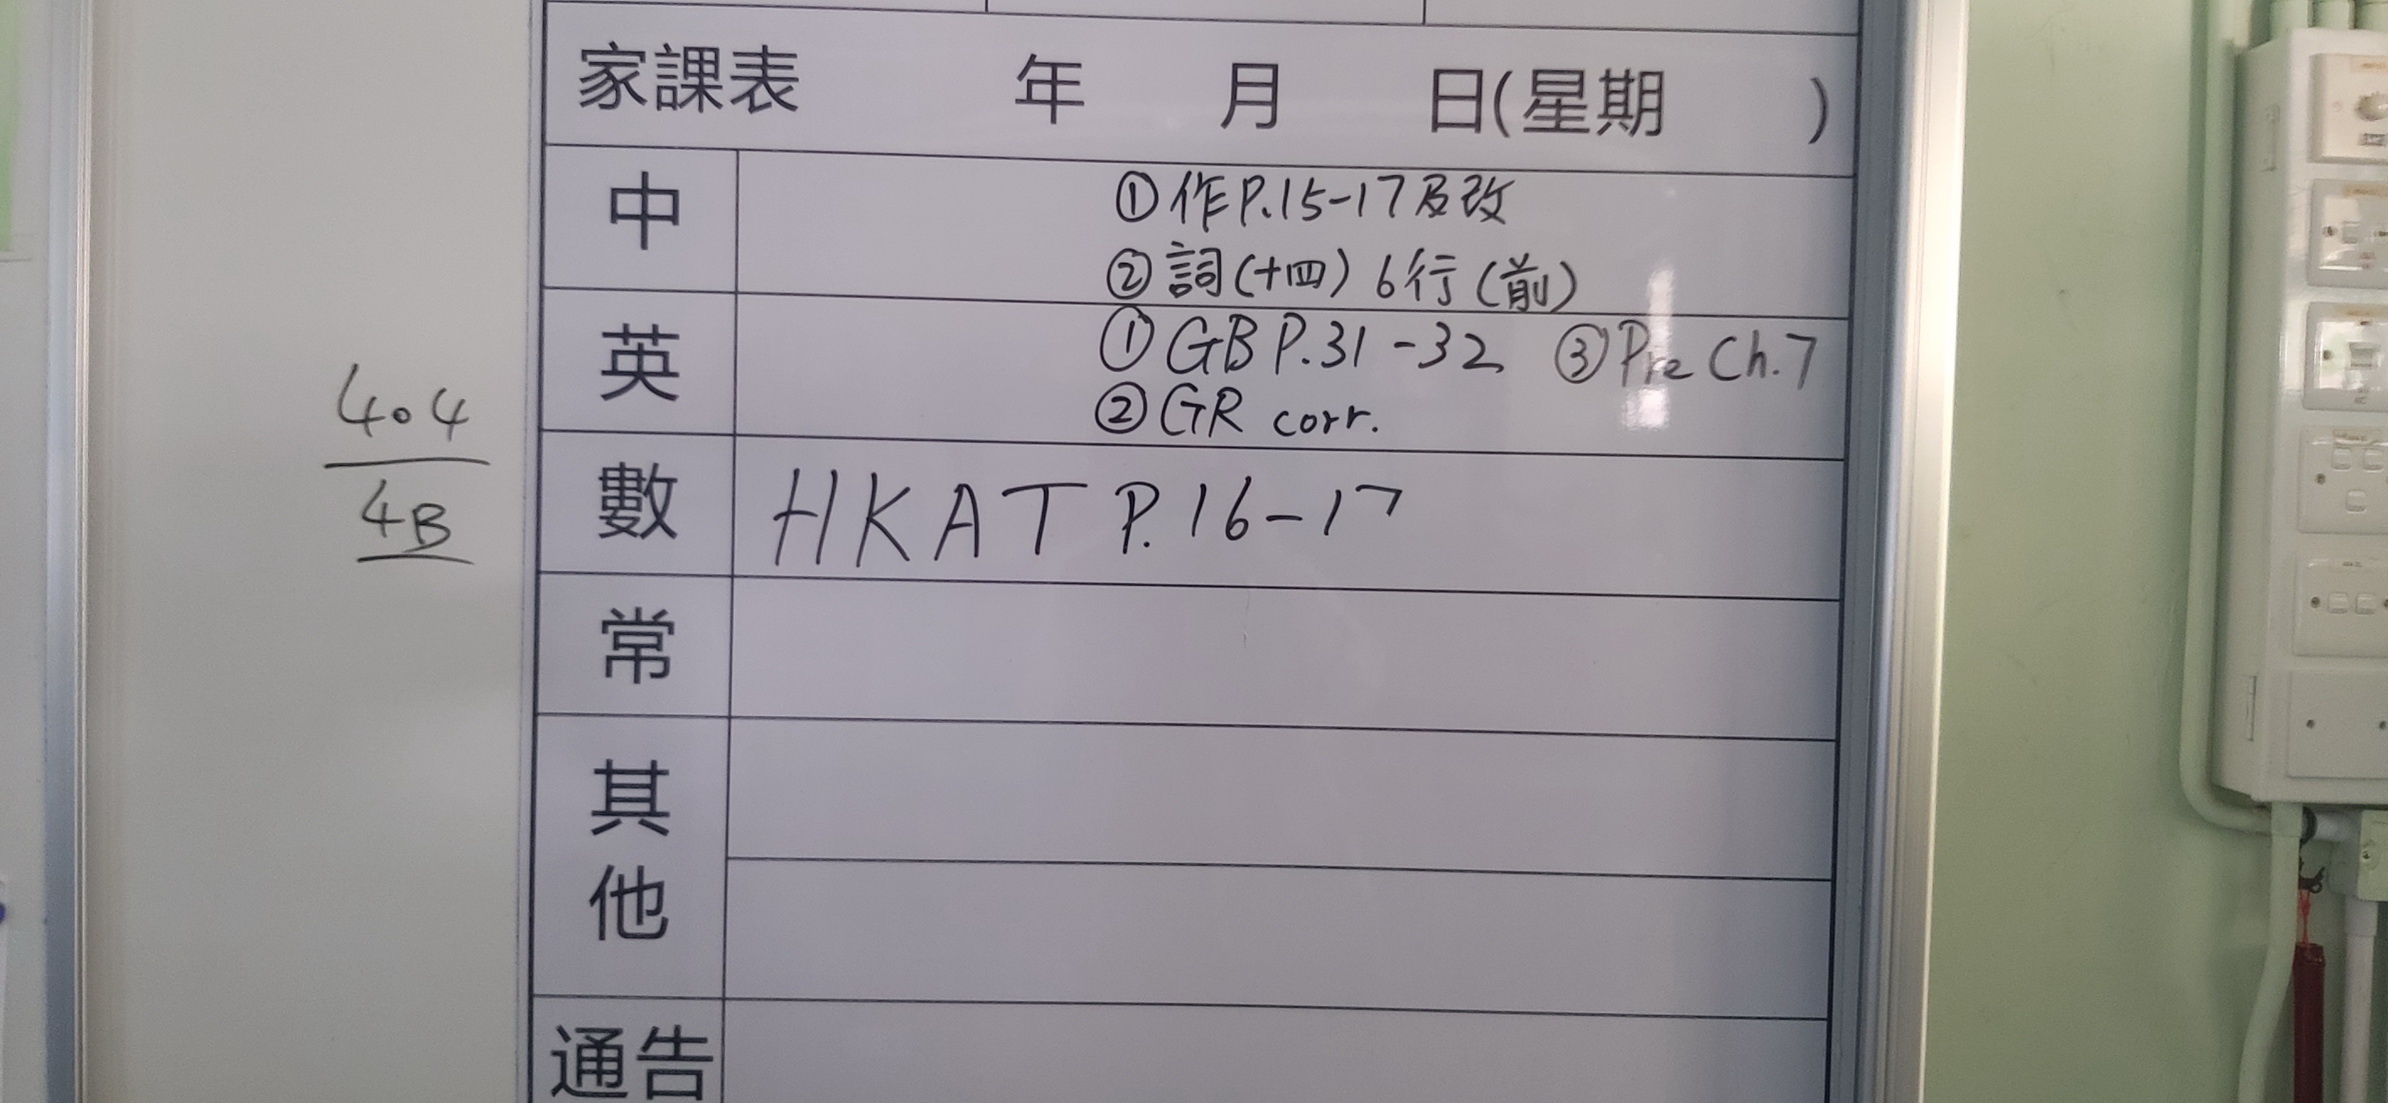 家課表 年 月 日(星期 )
中
①作P.15-17及改
②詞(十四) 6行(前)
英
①GB P.31-32 ③Pre Ch.7
②GR corr.
404
4B
數 HKAT P.16-17
常
其他
通告